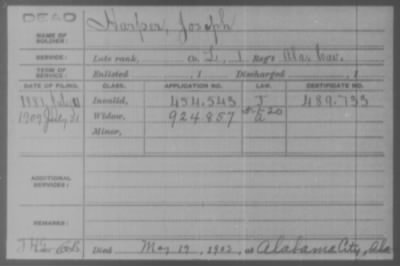 DEAD
NAME OF SOLDIER: Harper, Joseph
SERVICE: Late rank, Co. L, 1 Reg't Ala. Cav.
TERM OF SERVICE: Enlisted , 1 Discharged , 1
DATE OF FILING. CLASS. APPLICATION NO. LAW. CERTIFICATE NO.
Invalid, 454.543 J 489.733
1909 July Widow, 924857
Minor,
ADDITIONAL SERVICES:
REMARKS:
Died May 19, 1902, at Alabama City, Ala